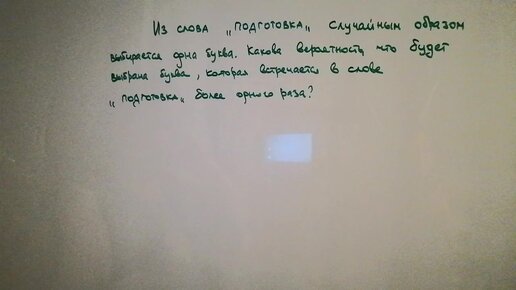 Из слова „подготовка„ случайным образом
выбирается одна буква. Какова вероятность, что будет
выбрана буква, которая встречается в слове
„подготовка„ более одного раза?